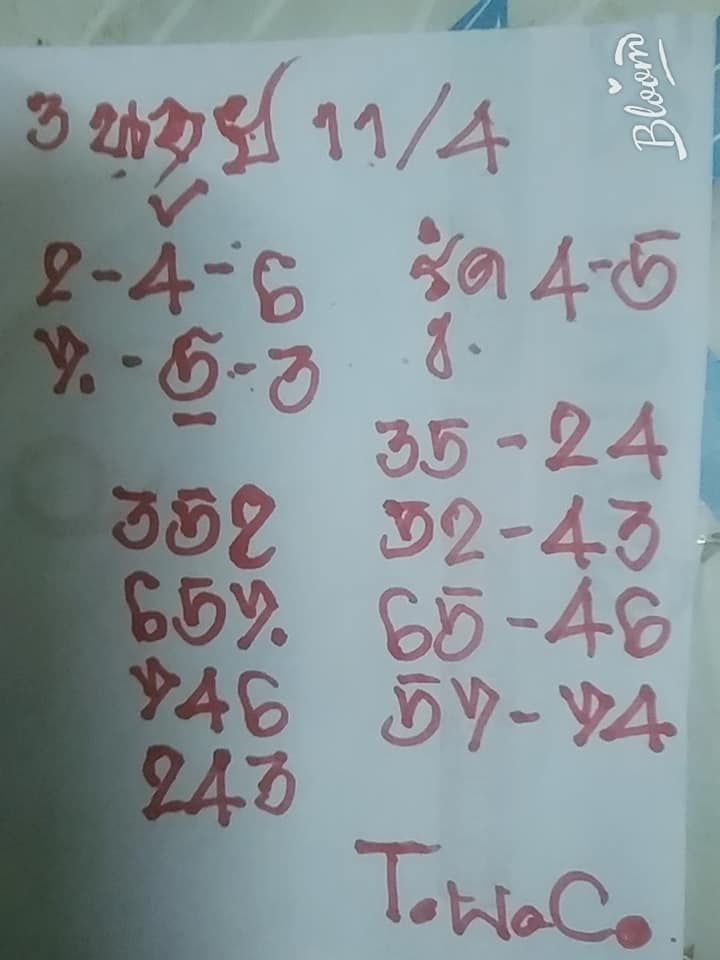 Bloom
3 พารวย 11/4
2-4-6
7-5-3
ชุด 4-5
352
657
746
243
35-24
52-43
65-46
57-74